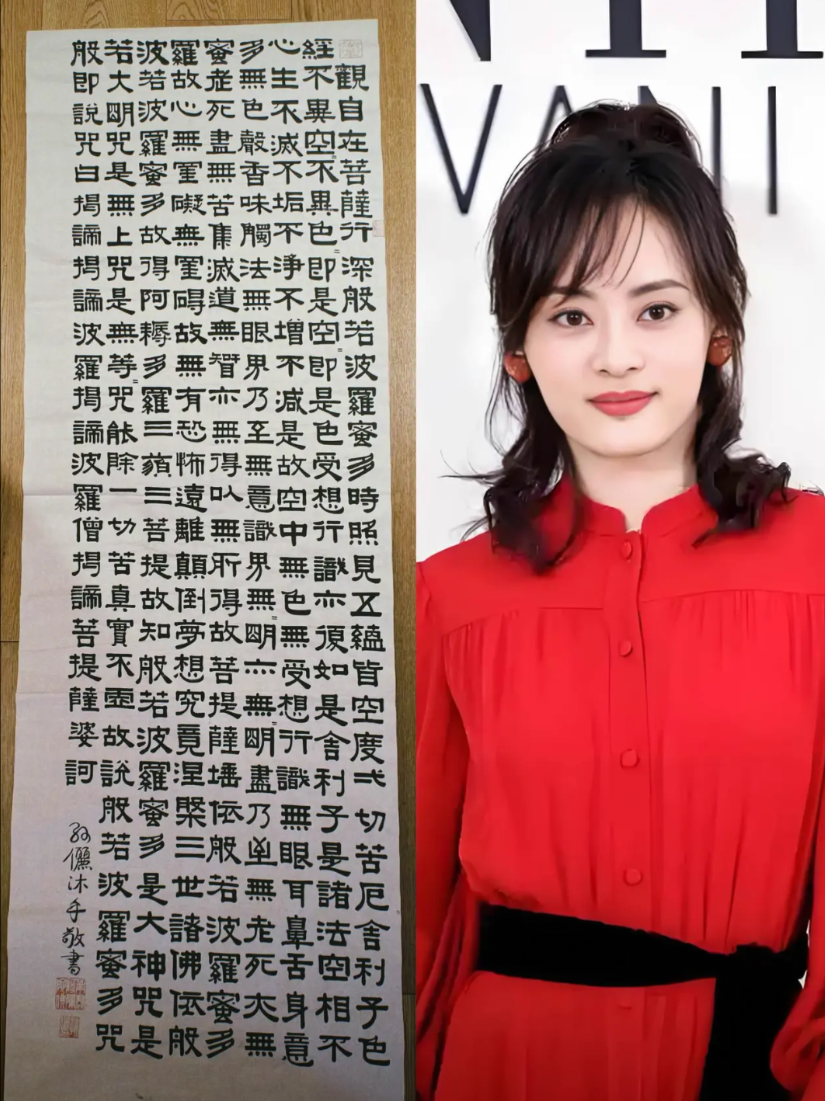 般若波羅蜜多心經
觀自在菩薩行深般若波羅蜜多時照見五蘊皆空度弌切苦厄舍利子色
不異空=不異色=即是空=即是色受想行識亦復如是舍利子是諸法空相不
生不滅不垢不淨不增不減是故空中無色無受想行識無眼耳鼻舌身意
無色聲香味觸法無眼界乃至無意識界無=明亦無=明盡乃至無老死亦無
老死盡無苦集滅道無智亦無得以無所得故菩提薩埵依般若波羅蜜多
故心無罣礙無罣礙故無有恐怖遠離顛倒夢想究竟涅槃三世諸佛依般
若波羅蜜多故得阿耨多羅三藐三菩提故知般若波羅蜜多是大神咒是
大明咒是無上咒是無等=咒能除一切苦真實不虛故說般若波羅蜜多咒
即說咒曰揭諦揭諦波羅揭諦波羅僧揭諦菩提薩婆訶
孫儷沐手敬書
VANI